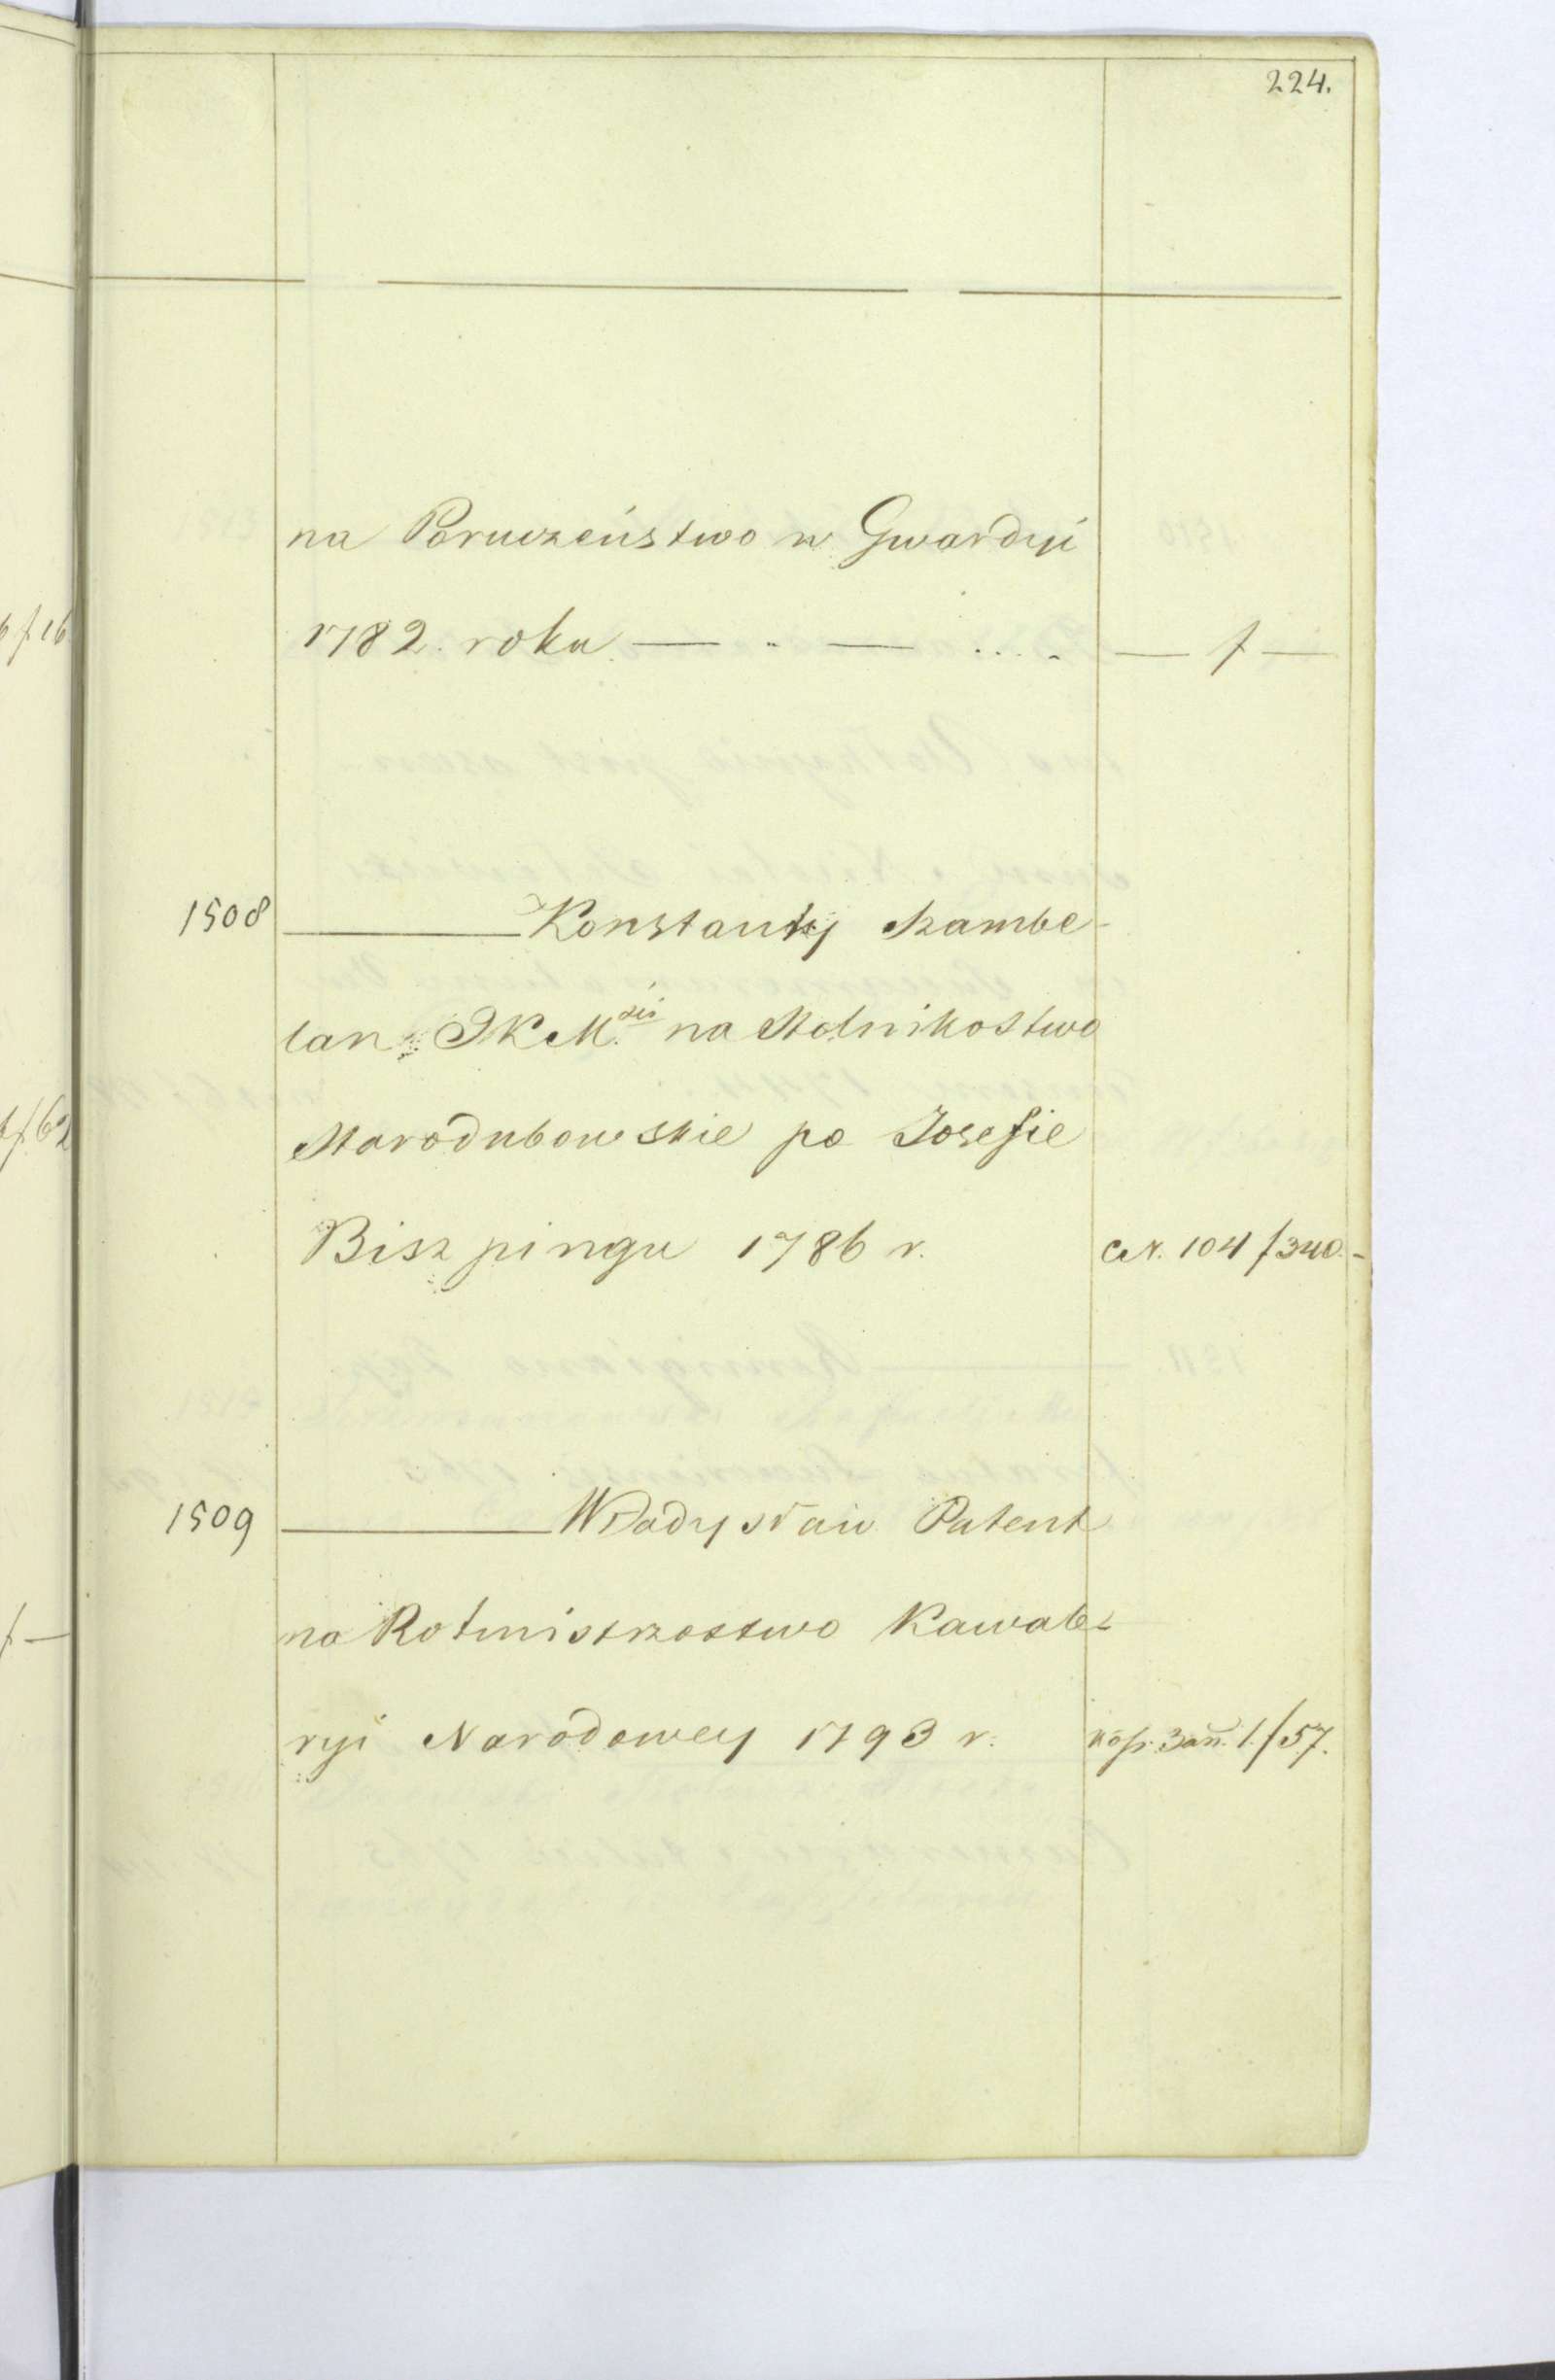 224.
na Poruczeństwo w Gwardyi
1782. roku — „ — .... — f —
1508 ——— Konstanty Szambe-
lan JKMści na Stolnikostwo
Starodubowskie po Jozefie
Biszpingu 1786 r. 104 f 340.-
1509 ——— Władysław Patent
na Rotmistrzostwo Kawale-
ryi Narodowey 1793 r. 1. f 57.